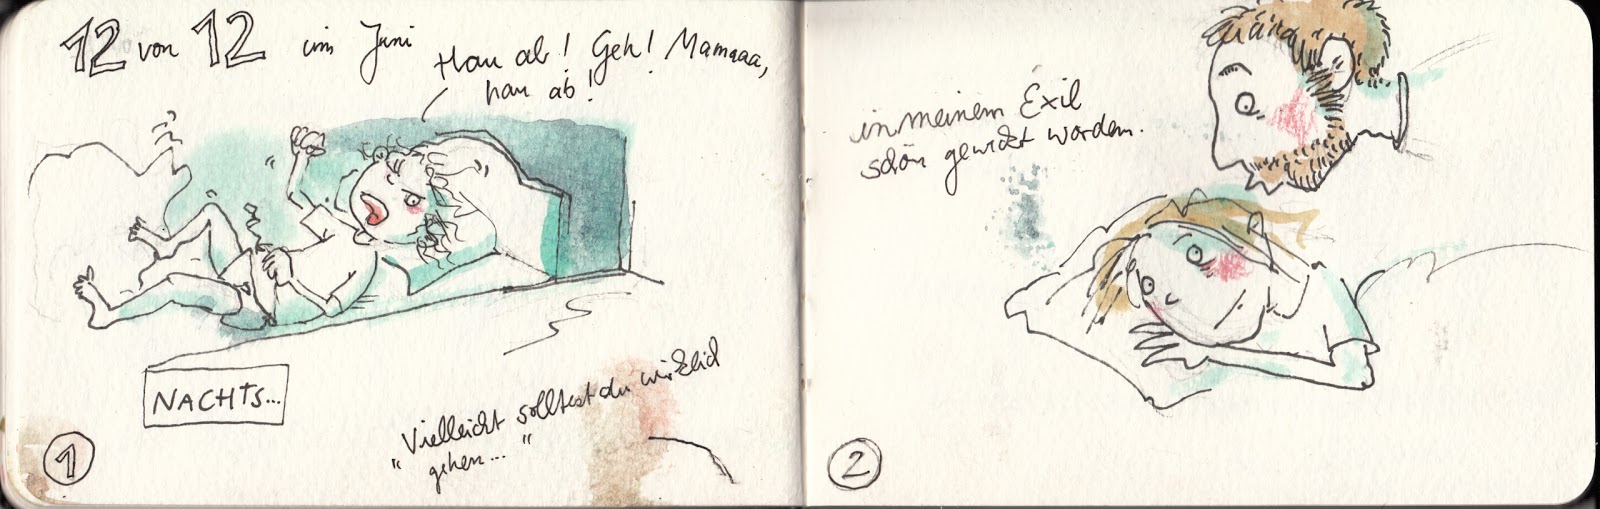 12 von 12 im Juni
Hau ab! Geh! Mamaaa,
hau ab!
NACHTS...
"Vielleicht solltest du wirklich
gehen..."
1
in meinem Exil
schön geweckt worden.
2